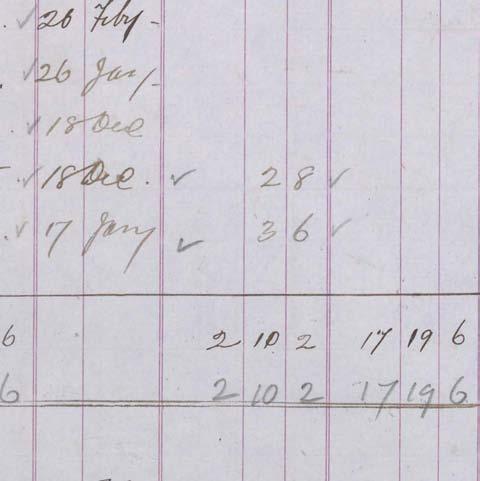 . ✓ 26 Feby -
✓ 26 Jany -
✓ 18 Dec
✓ 18 Dec. ✓ 2 8 ✓
✓ 17 Jany ✓ 3 6 ✓
6 2 10 2 17 19 6
6 2 10 2 17 19 6